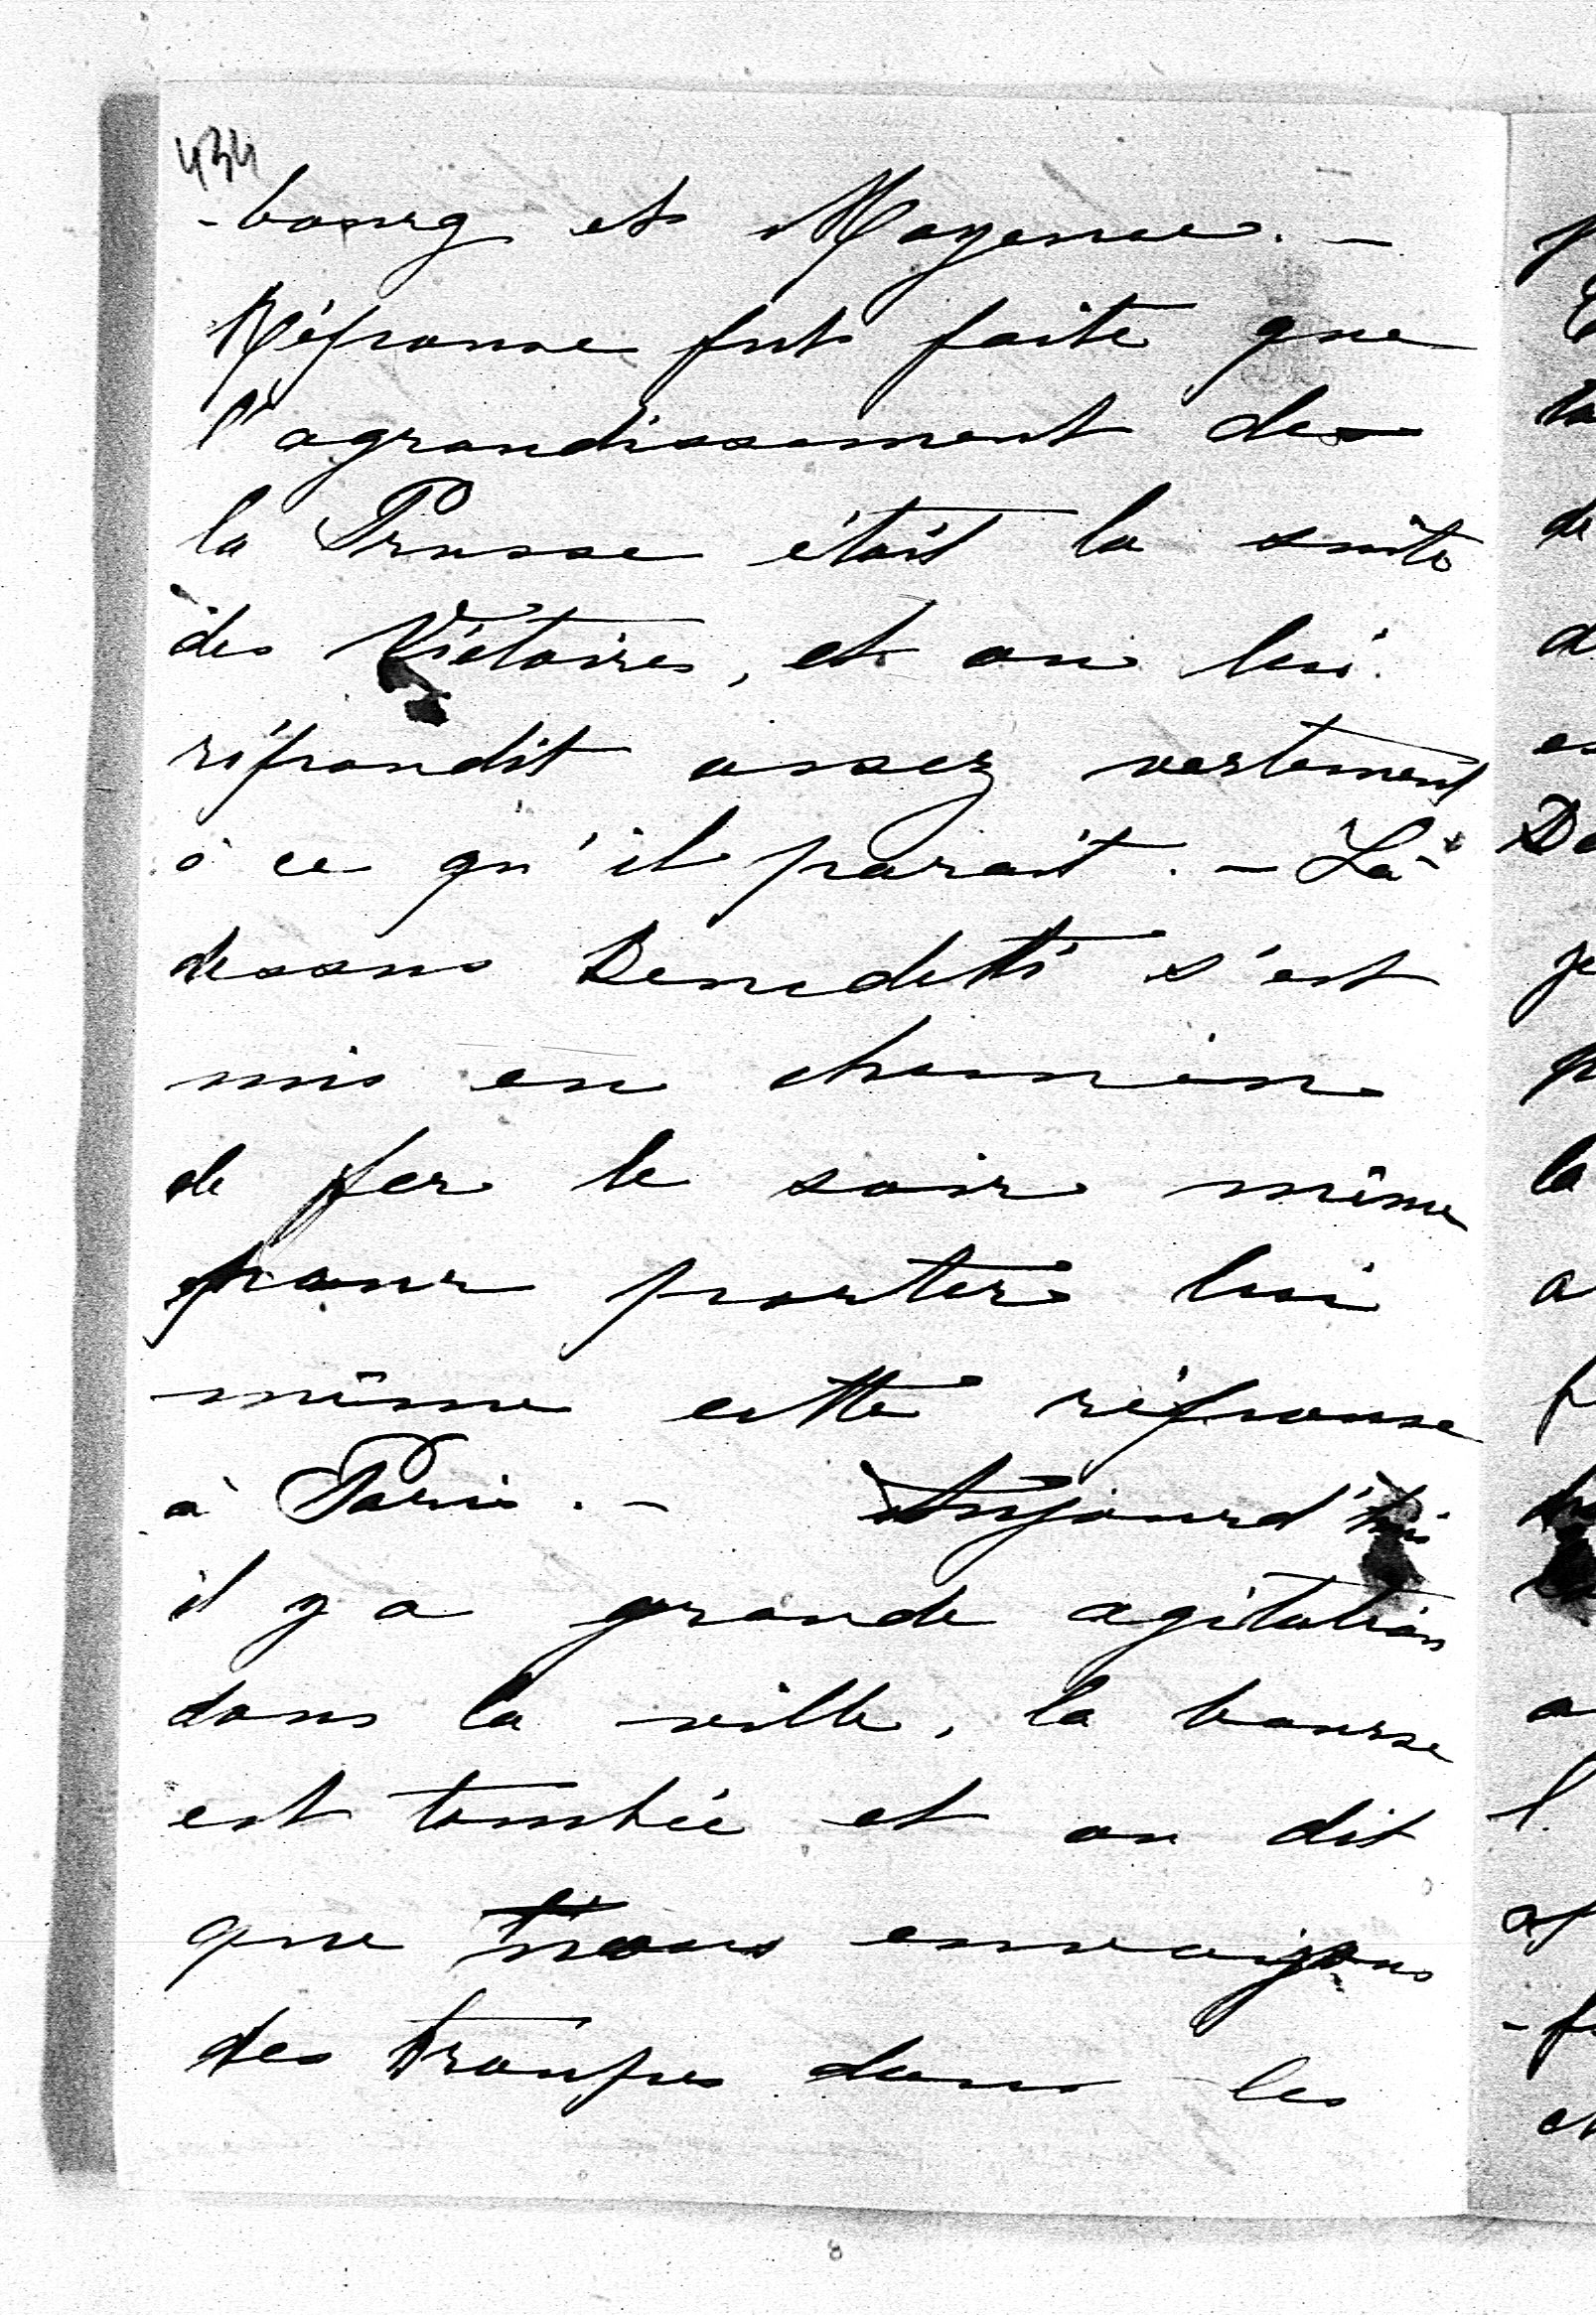 434
-bourg et Mayence. -
Réponse fut faite que
l'agrandissement de
la Prusse était la suite
des Victoires, et on lui
répondit assez vertement
à ce qu'il parait. - Là-
dessus Benedetti s'est
mis en chemin
de fer le soir même
pour porter lui
même cette réponse
à Paris. - Aujourd'hui
il y a grande agitation
dans la ville, la bourse
est tombée et on dit
que nous envoyons
des troupes dans les
8